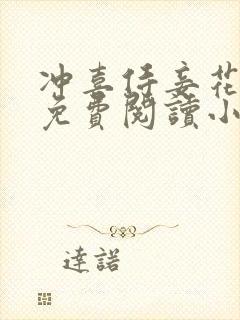 冲喜侍妾花
免費閱讀小
達諾